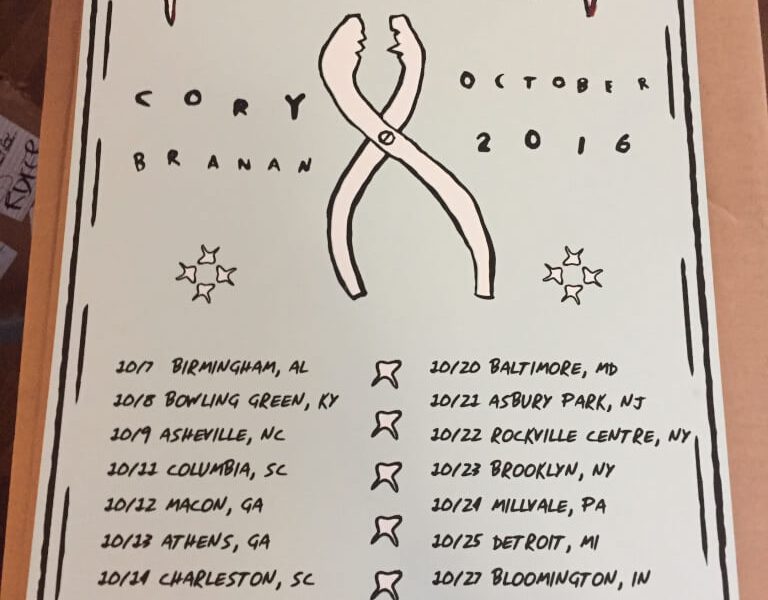 CORY
BRANAN
OCTOBER
2016
10/7 BIRMINGHAM, AL
10/8 BOWLING GREEN, KY
10/9 ASHEVILLE, NC
10/11 COLUMBIA, SC
10/12 MACON, GA
10/13 ATHENS, GA
10/14 CHARLESTON, SC
10/20 BALTIMORE, MD
10/21 ASBURY PARK, NJ
10/22 ROCKVILLE CENTRE, NY
10/23 BROOKLYN, NY
10/24 MILLVALE, PA
10/25 DETROIT, MI
10/27 BLOOMINGTON, IN